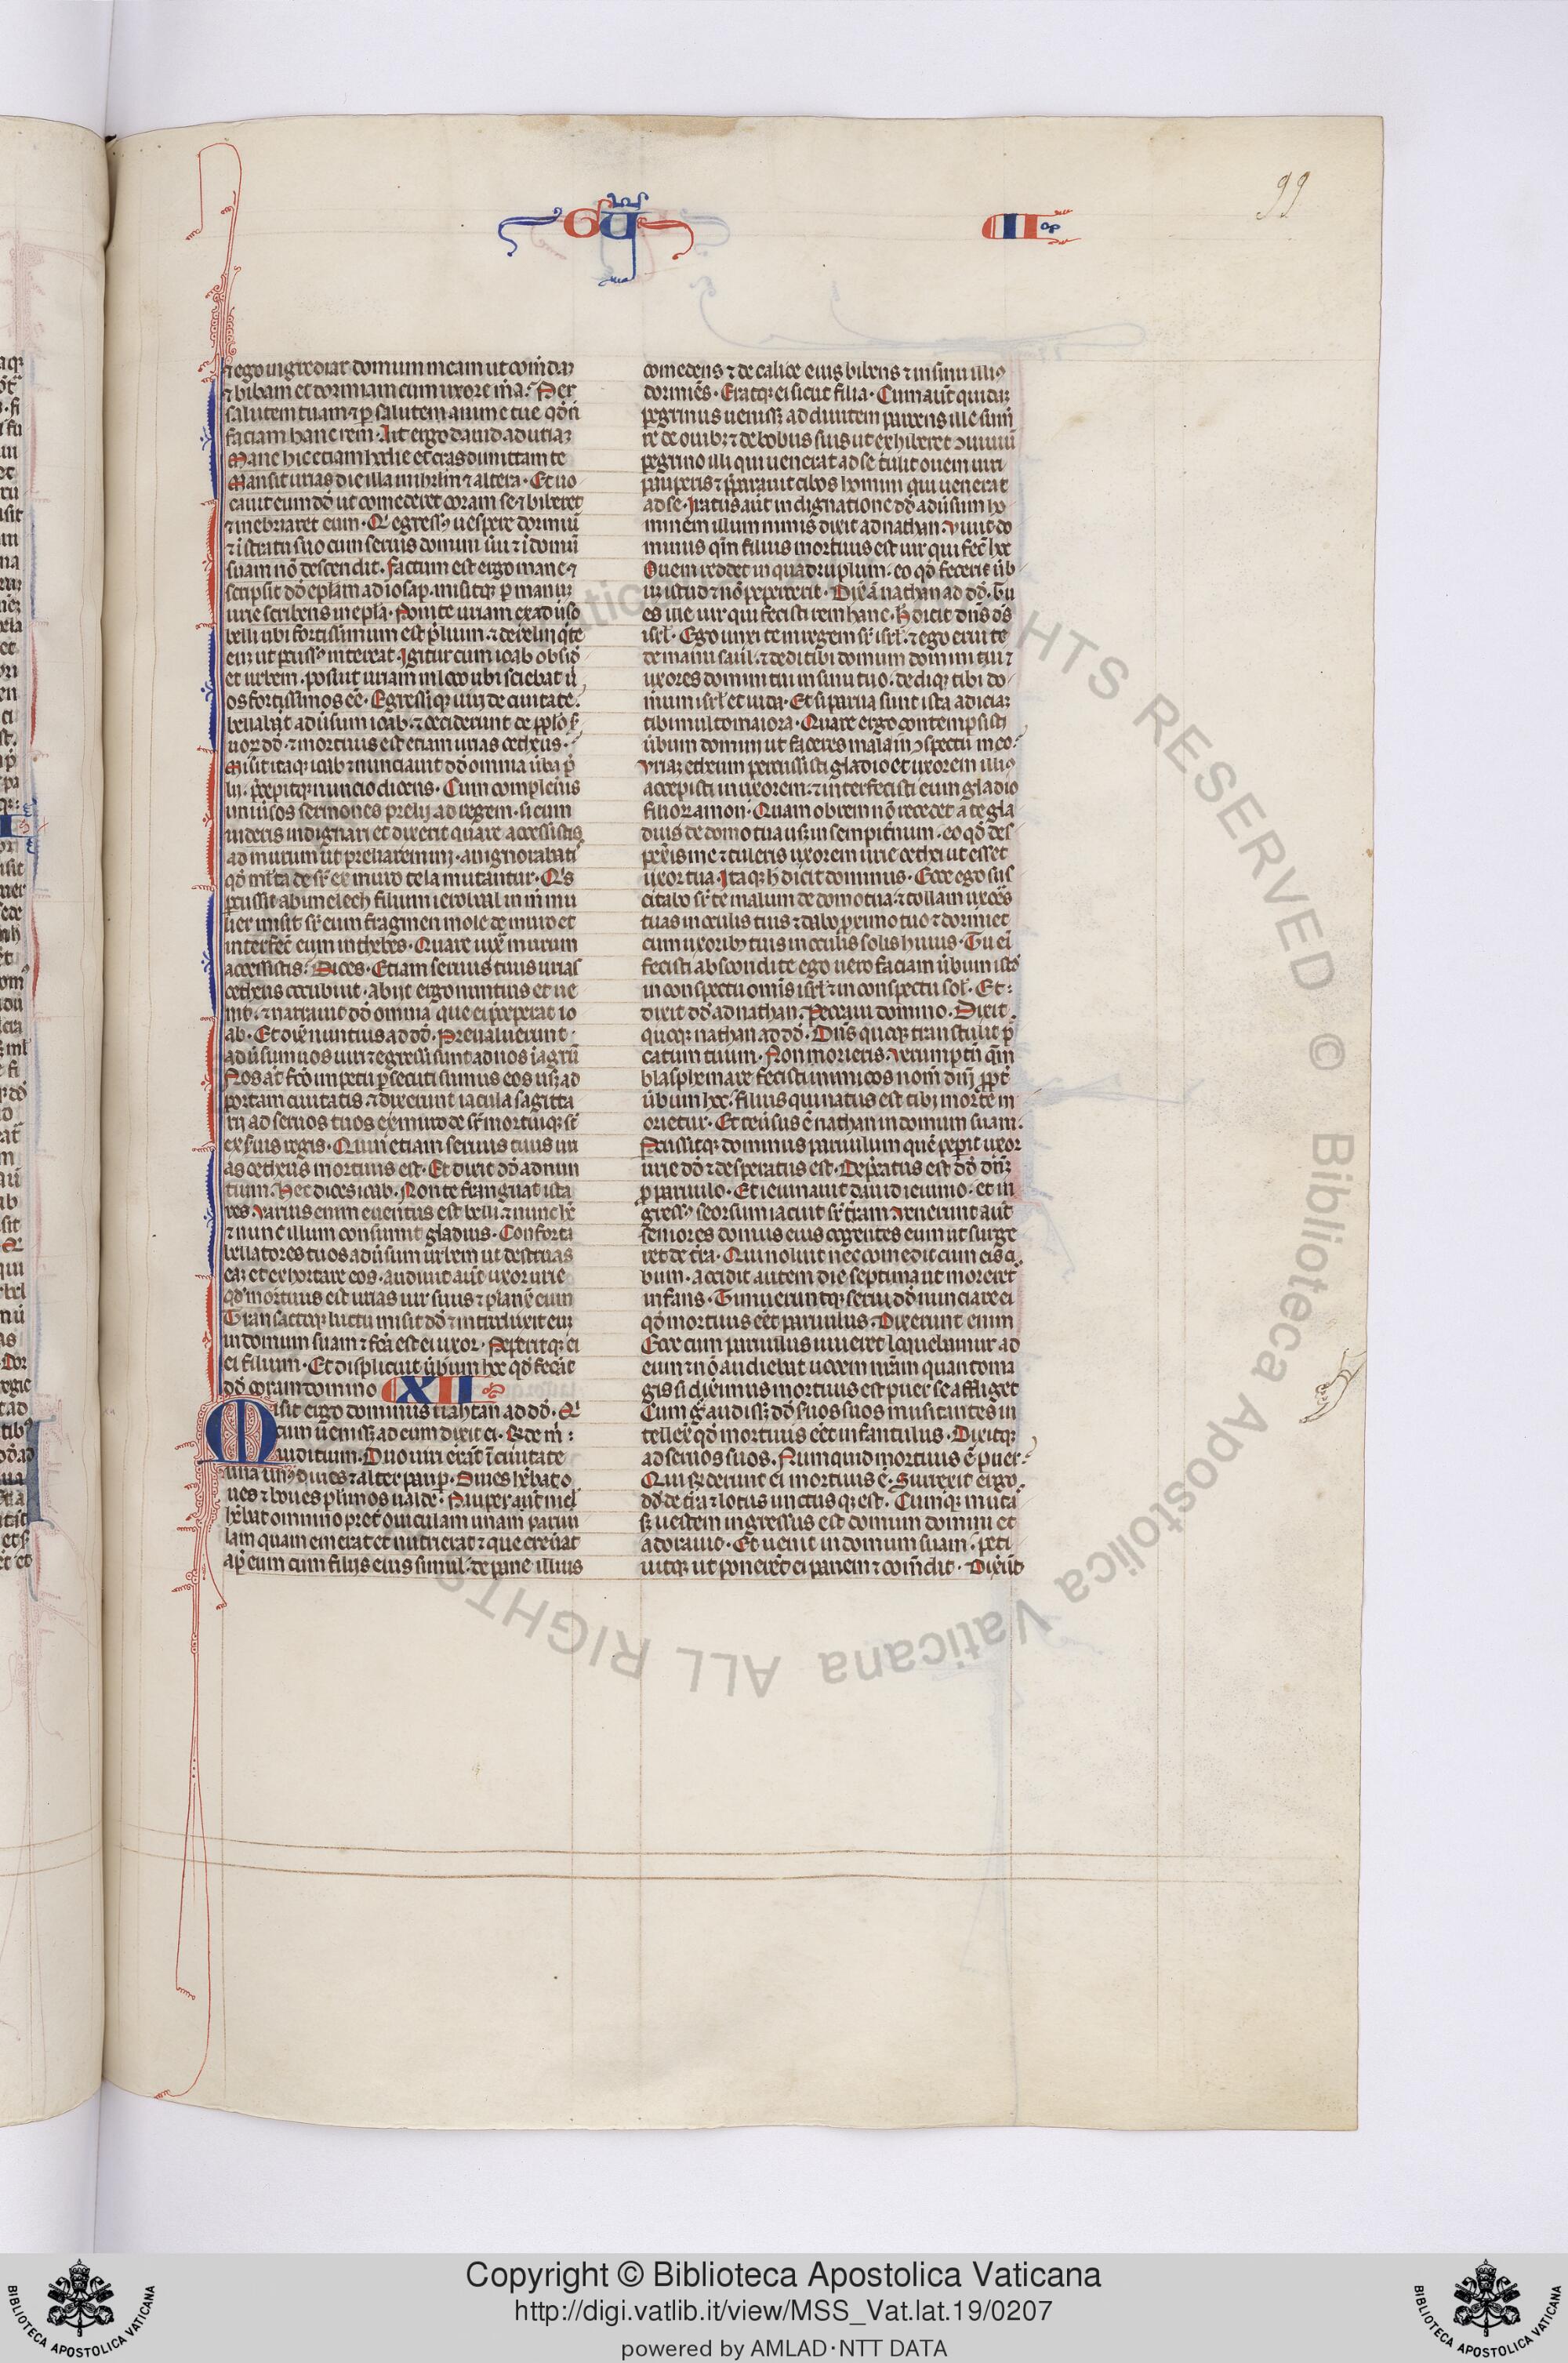 Gȳ
IIᵒˢ
99
⁊ ego ingrediar domum meam ut comedā
⁊ bibam et dormiam cum uxore m̄a. Per
salutem tuam ⁊ ꝑ salutem anime tue qđ n̄
faciam hanc rem. Ait ergo dauid ad uriaꝫ
Mane hic etiam hodie et cras dimittam te
Mansit urias die illa in ihrl̄m ⁊ altera. Et uo
cauit eum dđ ut comederet coram se ⁊ biberet
⁊ inebriaret eum. Qͥ egressꝰ uespere dormiū
⁊ ī stratu suo cum seruis domini sui ⁊ ī domū
suam nō descendit. Factum est ergo mane ⁊
scripsit dđ ep̄lam ad ioaƀ. misitqꝫ ꝑ manuꝫ
urie scribens in ep̄la. Ponite uriam ex adūso
belli ubi fortissimum est p̄lium. ⁊ derelinq̄te
euꝫ ut ꝑcussꝰ intereat. Igitur cum ioab obsid̄
et urbem. posuit uriam in loco ubi sciebat ū
os fortissimos eē. Egressiqꝫ uiri de ciuitate.
bellabāt adūsum ioab. ⁊ ceciderunt de pp̄lo s̄
uoꝝ dđ. ⁊ mortuus est etiam urias cetheus.
Misit itaqꝫ ioab ⁊ nunciauit dđ omnia ūba p̄
lij. p̄cepitqꝫ nuncio dicens. Cum compleuis
uniūsos sermones prelij ad regem. si eum
uideris indignari et dixerit quare accessistis
ad murum ut preliaremini. an ignorabati
qđ ml̄ta desr̄ ex muro tela mittantur. Qͥs
ꝑcussit abimelech filium ieroboal. nōn̄ mu
lier misit sr̄ eum fragmen mole de muro et
interfec̄ eum in thebes. Quare iux̄ murum
accessistis. Dices. Etiam seruus tuus urias
cetheus occubuit. abijt ergo nuntius et ue
nit. ⁊ narrauit dđ omnia que ei p̄ceperat io
ab. Et dix̄ nuntius ad dđ. Preualuerunt
adūsum nos uiri ⁊ egressi sunt ad nos ī agrū
Nos aūt fc̄o impetu ꝑsecuti sumus eos usqꝫ ad
portam ciuitatis ⁊ direxerunt iacula sagitta
rij ad seruos tuos ex muro desr̄ mortuiqꝫ st̄
ex s̄uis regis. Quin etiam seruus tuus uri
as cetheus mortuus est. Et dixit dđ ad nun
tium. Hec dices ioab. Non te frangat ista
res. Varius enim euentus est belli. ⁊ nunc h̄c
⁊ nunc illum consumit gladius. Conforta
bellatores tuos adūsum urbem ut destruas
eaꝫ et exhortare eos. audiuit aūt uxor urie
qđ mortuus est urias uir suus ⁊ planx̄ eum
Transactoqꝫ luctu misit dđ ⁊ introduxit eaꝫ
in domum suam ⁊ fc̄a est ei uxor. Peperitqꝫ ei
ei filium. Et displicuit ūbum hoc qđ fecerat
dđ coram domino XII
Misit ergo dominus nahtan ad dđ. Qͥ
cum uenissꝫ ad eum dixit ei. R̄de m̄
iuditium. Duo uiri erāt ī ciuitate
una unꝰ diues ⁊ alter paup̄. Diues h̄ebat o
ues ⁊ boues plͥmos ualde. Pauper aūt nicl̄
h̄ebat omnino pret̄ ouiculam unam paruu
lam quam emerat et nutrierat ⁊ que creūat
ap̄ eum cum filijs eius simul. de pane illius
comedens ⁊ de calice eius bibens ⁊ in sinu illiꝰ
dormiēs. Eratqꝫ ei sicut filia. Cum aūt quidaꝫ
pegrinus uenissꝫ ad diuitem parcens ille sum̄
re de ouibꝫ ⁊ de bobus suis ut exhiberet ꝯuiuiū
pegrino illi qui uenerat ad se tulit ouem uiri
pauperis ⁊ p̄parauit cibos homini qui uenerat
ad se. Iratus aūt indignatione dđ adūsum ho
minem illum nimis dixit ad nathan. Viuit do
minus qm̄ filius mortuus est uir qui fec̄ hoc
Ouem reddet in quadruplum. eo qđ fecerit ūb
ū istud ⁊ nō pepercerit. Dix̄ aūt nathan ad dđ. tu
es ille uir qui fecisti rem hanc. h̄ dicit dn̄s ds̄
isrl̄. Ego unxi te in regem sr̄ isrl̄. ⁊ ego erui te
de manu saul. ⁊ dedi tibi domum domini tui ⁊
uxores domini tui in sinu tuo. dediqꝫ tibi do
mum isrl̄ et iuda. Et si parua sunt ista adiciaꝫ
tibi multo maiora. Quare ergo contempsisti
ūbum domini ut faceres malum ī ꝯspectu meo.
Vriaꝫ etheum percussisti gladio et uxorem illiꝰ
accepisti in uxorem. ⁊ interfecisti eum gladio
filioꝝ amon. Quam obrem nō recedet a te gla
dius de domo tua usqꝫ in sempit̄num. eo qđ des
pexeris me ⁊ tuleris uxorem urie cethei ut esset
uxor tua. Itaqꝫ h̄ dicit dominus. Ecce ego sus
citabo sr̄ te malum de domo tua. ⁊ tollam uxores
tuas in oculis tuis ⁊ dabo proximo tuo ⁊ dormiet
cum uxoribꝫ tuis in oculis solis huius. Tu eī
fecisti abscondite ego uero faciam ūbum istđ
in conspectu omīs isrl̄ ⁊ in conspectu sol̄. Et
dixit dđ ad nathan. Peccaui domino. Dixit
quoqꝫ nathan ad dđ. Dn̄s quoqꝫ transtulit p̄
catum tuum. Non morieris. Verumptn̄ qm̄
blasphemare fecisti inimicos nom̄ dn̄j ꝓpt̄
ūbum hoc. filius qui natus est tibi morte m
orietur. Et reūsus ē nathan in domum suam.
Percussitqꝫ dominus paruulum quē pepit uxor
urie dđ ⁊ desperatus est. Dep̄catus est dđ dn̄ꝫ
ꝓ paruulo. Et ieiunauit dauid ieiunio. et in
gressꝰ seorsum iacuit sr̄ t̄ram. Venerunt aūt
seniores domus eius cogentes eum ut surge
ret de t̄ra. Qui noluit nec comedit cum eis ci
bum. accidit autem die septima ut moreret̄
infans. Timueruntqꝫ serui dđ nunciare ei
qđ mortuus eēt paruulus. Dixerunt enim
Ecce cum paruulus uiueret loquebamur ad
eum ⁊ nō audiebat uocem nr̄am quanto ma
gis si dixerimus mortuus est puer se affliget
Cum ḡ audissꝫ dđ suos suos musitantes in
tellex̄ qđ mortuus eēt infantulus. Dixitqꝫ
ad seruos suos. Numquid mortuus ē puer.
Qui r̄nderunt ei mortuus ē. Surrexit ergo
dđ de t̄ra ⁊ lotus unctusqꝫ est. Cumqꝫ muta
sꝫ uestem ingressus est domum domini et
adorauit. Et uenit in domum suam. peti
uitqꝫ ut ponerēt ei panem ⁊ com̄dit. Dixerūt
Biblioteca Apostolica Vaticana ALL RIGHTS RESERVED ©
Copyright © Biblioteca Apostolica Vaticana
http://digi.vatlib.it/view/MSS_Vat.lat.19/0207
powered by AMLAD·NTT DATA
BIBLIOTECA APOSTOLICA VATICANA
BIBLIOTECA APOSTOLICA VATICANA